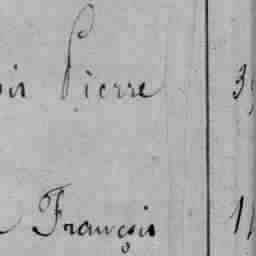 oir Pierre 39
François 14